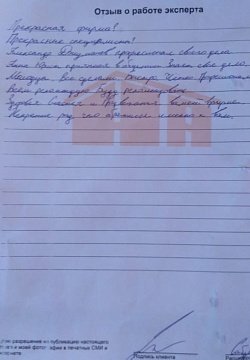 Отзыв о работе эксперта
Прекрасная фирма!
Прекрасные специалисты!
Александр профессионал своего дела
приятная в общении Знает своё дело.
Все сделали Быстро Четко Профессионально
Всем рекомендую Буду рекомендовать
вашей фирме
Искренне рад что обратился именно к Вам.
разрешение на публикацию настоящего
и моей фотографии в печатных СМИ и
Подпись клиента